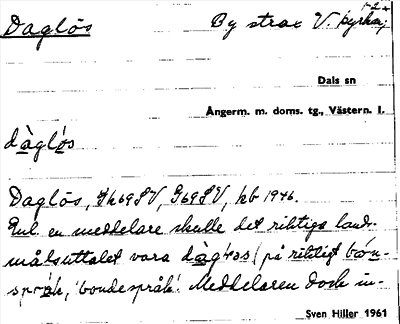 1-2
Daglös By strax V. kyrkan;
Dals sn
Ångerm. m. doms. tg., Västern. l.
dàglo̕s
Daglös, Gk69SV, G69SV, kb 1946.
Enl. en meddelare skulle det riktiga land-
målsuttalet vara (på riktigt bön-
språk, 'bondespråk'. Meddelaren dock in-
Sven Hiller 1961